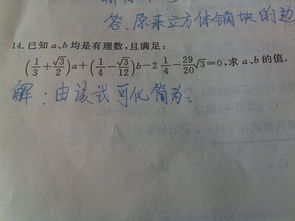 答、原来立方体钢块的边
14. 已知 a、b 均是有理数,且满足:
(1/3+√3/2)a+(1/4-√3/12)b-2 1/4-29/20√3=0,求 a、b 的值.
解:由该式可化简为: